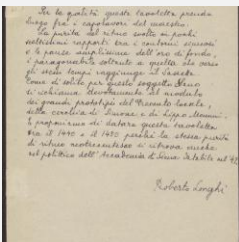 Per la qualità questa tavoletta prende
luogo fra i capolavori del maestro.
La purità del ritmo svolto in pochi
sottilissimi rapporti tra i contorni sinuosi
e le parche semplicità dell'oro di fondo,
è paragonabile soltanto a quella che verso
gli stessi tempi raggiunge il Sassetta.
Come di solito per questo soggetto
si richiama devotamente al modulo
dei grandi prototipi del Trecento locale,
della cerchia di Simone e di Lippo Memmi.
E proporremmo di datare questa tavoletta
tra il 1440 e il 1450 perché la stessa purità
di ritmo neotrecentesco si ritrova anche
nel polittico dell'Accademia di Siena datato nel
Roberto Longhi